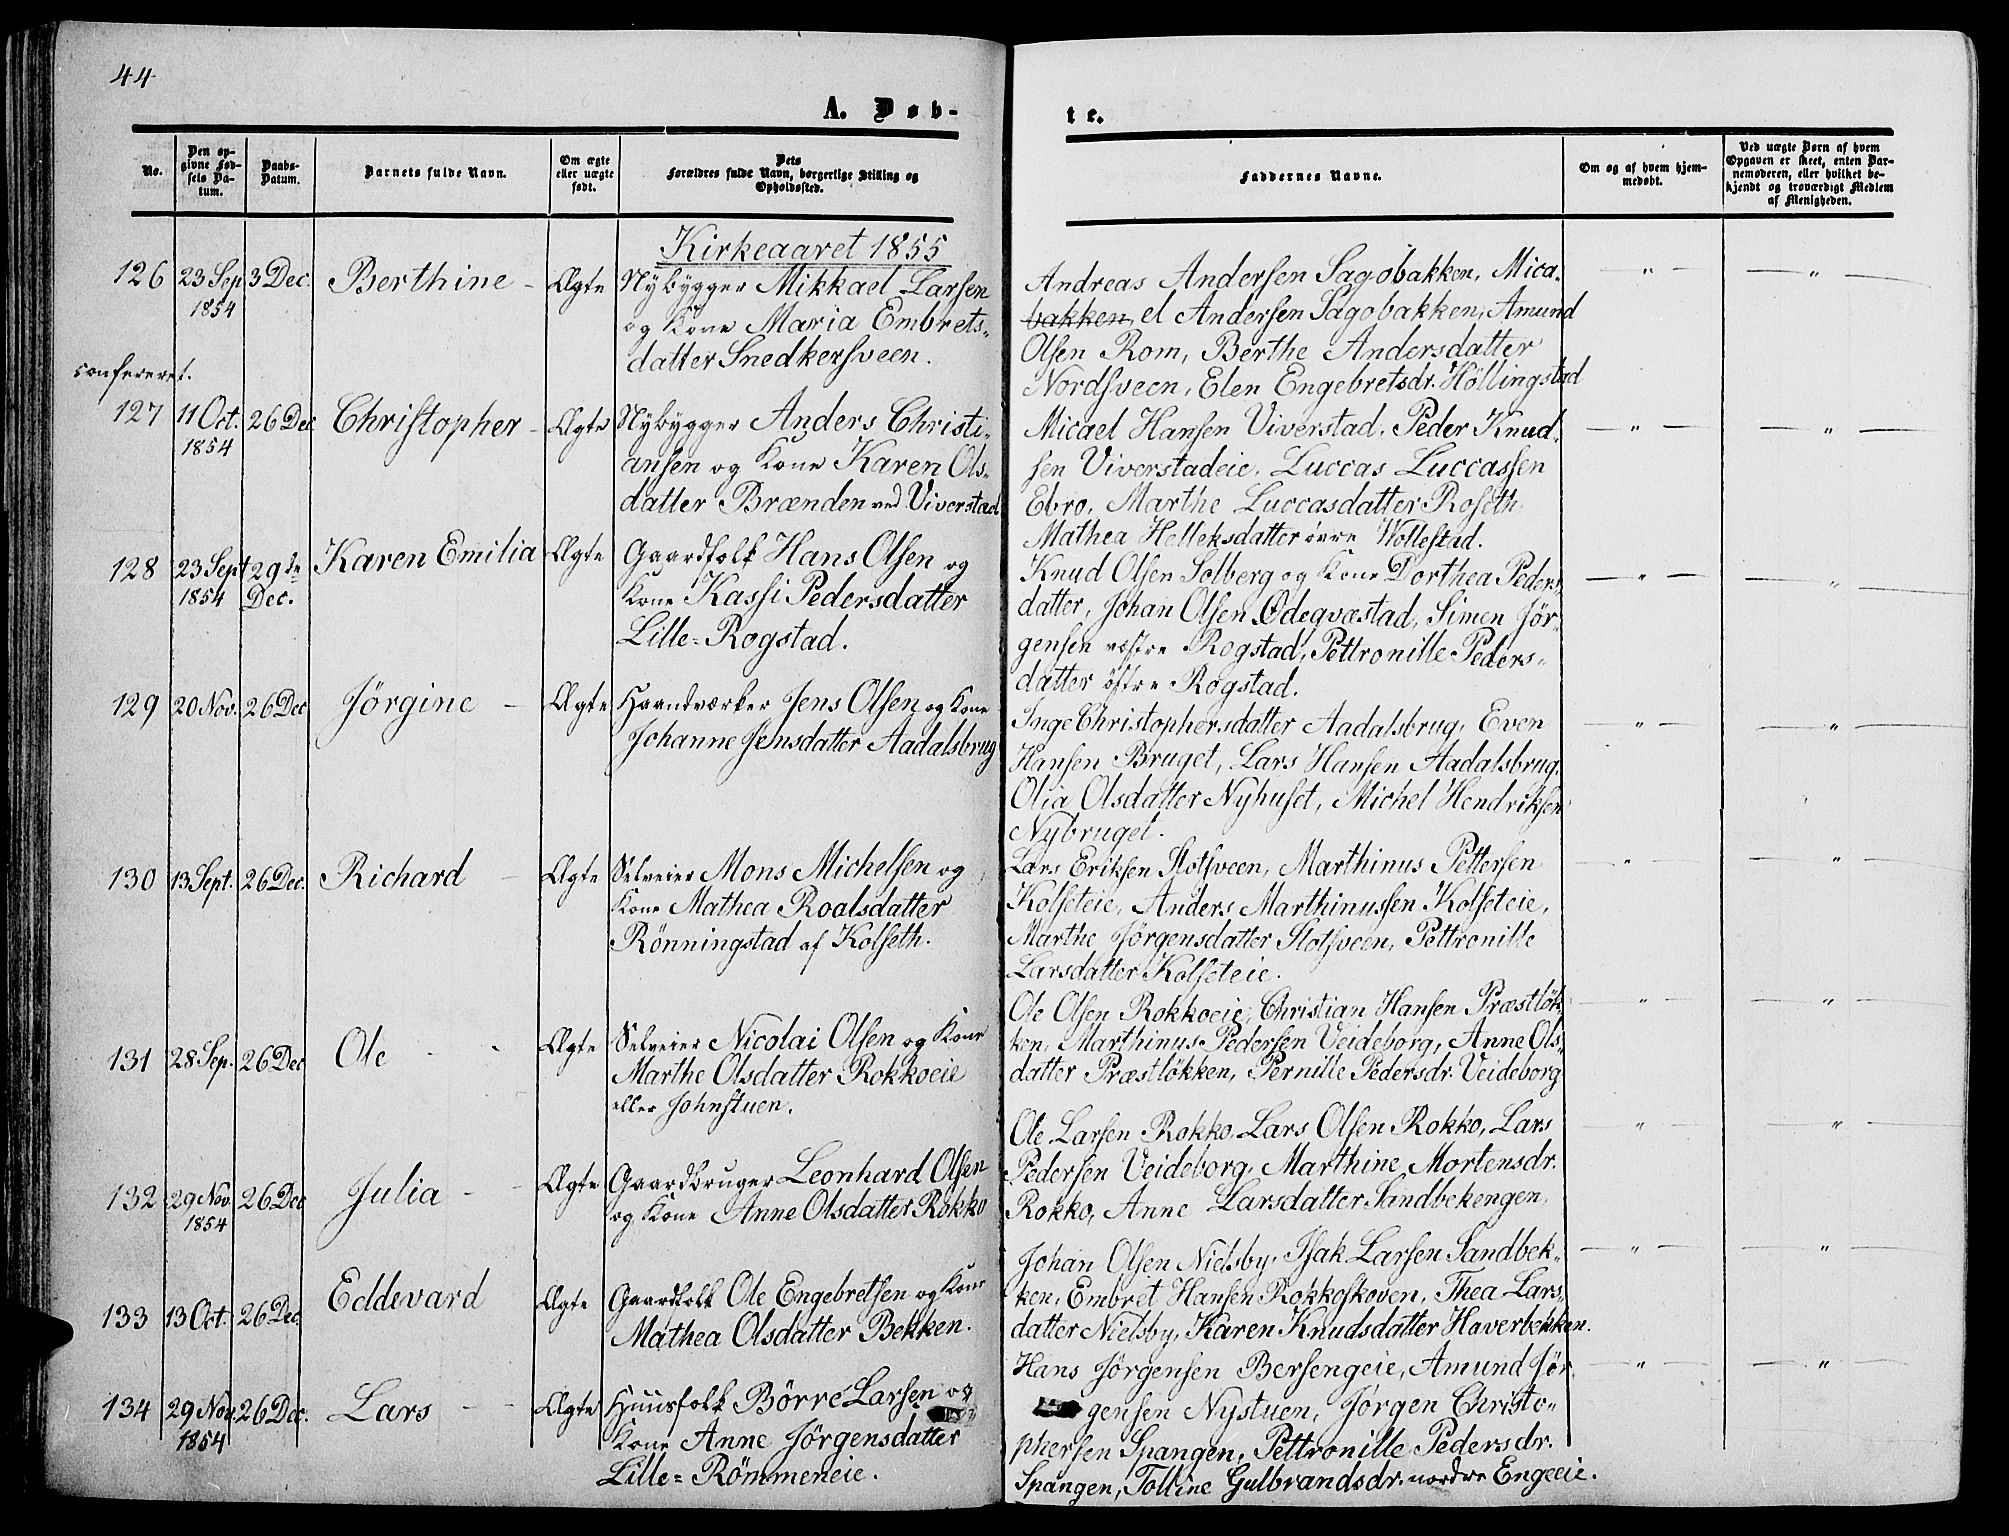 44
A. Døb-
te.
No.
Den op-
givne Fød-
sels Da-
tum.
Daabs-
Datum.
Barnets fulde Navn.
Om ægte
eller uægte
født.
Dets
Forældres fulde Navn, borgerlige Stilling og
Opholdssted.
Faddernes Navne.
Om og af hvem hjem-
medøbt.
Ved uægte Børn af hvem
Opgaven er skeet, enten Bar-
nemoderen, eller hvilket be-
kjendt og troværdigt Medlem
af Menigheden.
Kirkeaaret 1855
126 23 Sep 1854 3 Dec. Berthine - Ægte
Nybygger Mikkael Larsen
og Kone Maria Embrets-
datter Snedkersveen.
Andreas Andersen Sagobakken, Mica-
bakken, el Andersen Sagobakken, Amund
Olsen Rom, Berthe Andersdatter
Nordsveen, Elen Engebretsdr. Höllingstad
confereret.
127 11 Oct. 1854 26 Dec Christopher - Ægte
Nybygger Anders Christi-
ansen og Kone Karen Ols-
datter Brænden ved Viverstad
Micael Hansen Viverstad, Peder Knud-
sen Viverstadeie, Luccas Luccassen
Ebro, Marthe Luccasdatter Roseth
Mathea Helleksdatter övre Wollestad.
128 23 Sept 1854 29de Dec. Karen Emilia Ægte
Gaardfolk Hans Olsen og
Kone Kassi Pedersdatter
Lille-Rogstad.
Knud Olsen Solberg og Kone Dorthea Peders-
datter, Johan Olsen Ödegvæstad, Simen Jör-
gensen vestre Rogstad, Pettronille Peders-
datter östre Rogstad.
129 20 Nov. 26 Dec Jørgine - Ægte
Haandværker Jens Olsen og Kone
Johanne Jensdatter Aadalsbrug
Inge Christophersdatter Aadalsbrug, Even
Hansen Bruget, Lars Hansen Aadalsbrug.
Olia Olsdatter Nyhuset, Michel Hendriksen
Nybruget.
130 13 Sept. 26 Dec. Richard - Ægte
Selveier Mons Michelsen og
Kone Mathea Roalsdatter
Rönningstad af Kolseth.
Lars Eriksen Slotsveen, Marthinus Pettersen
Kolseteie, Anders Marthinussen Kolseteie,
Marthe Jörgensdatter Slotsveen, Pettronille
Larsdatter Kolseteie.
131 28 Sep. 26 Dec Ole - - Ægte
Selveier Nicolai Olsen og Kone
Marthe Olsdatter Rokkoeie
eller Johnstuen.
Ole Olsen Rokkoeie, Christian Hansen Præstløk-
ken, Marthinus Pedersen Veideborg, Anne Ols-
datter Præstløkken, Pernille Pedersdr. Veideborg
132 29 Nov. 1854 26 Dec Julia - - Ægte
Gaardbruger Leonhard Olsen
og Kone Anne Olsdatter Rokko
Ole Larsen Rokko, Lars Olsen Rokko, Lars
Pedersen Veideborg, Marthine Mortensdr.
Rokko, Anne Larsdatter Sandbekengen,
133 13 Oct. 26 Dec. Eddevard Ægte
Gaardfolk Ole Engebretsen og Kone
Mathea Olsdatter Bekken.
Johan Olsen Nielsby, Isak Larsen Sandbek-
ken, Embret Hansen Rokkoskoven, Thea Lars-
datter Nielsby, Karen Knudsdatter Haverbekken.
134 29 Nov. 1854 26 Dec. Lars - - Ægte
Huusfolk Börre Larsen og
Kone Anne Jörgensdatter
Lille-Römmeneie.
Hans Jörgensen Bersengeie, Amund Jör
gensen Nystuen, Jørgen Christo-
phersen Spangen, Pettronille Pedersdr.
Spangen, Tolline Gulbrandsdr. nordre Engeeie.